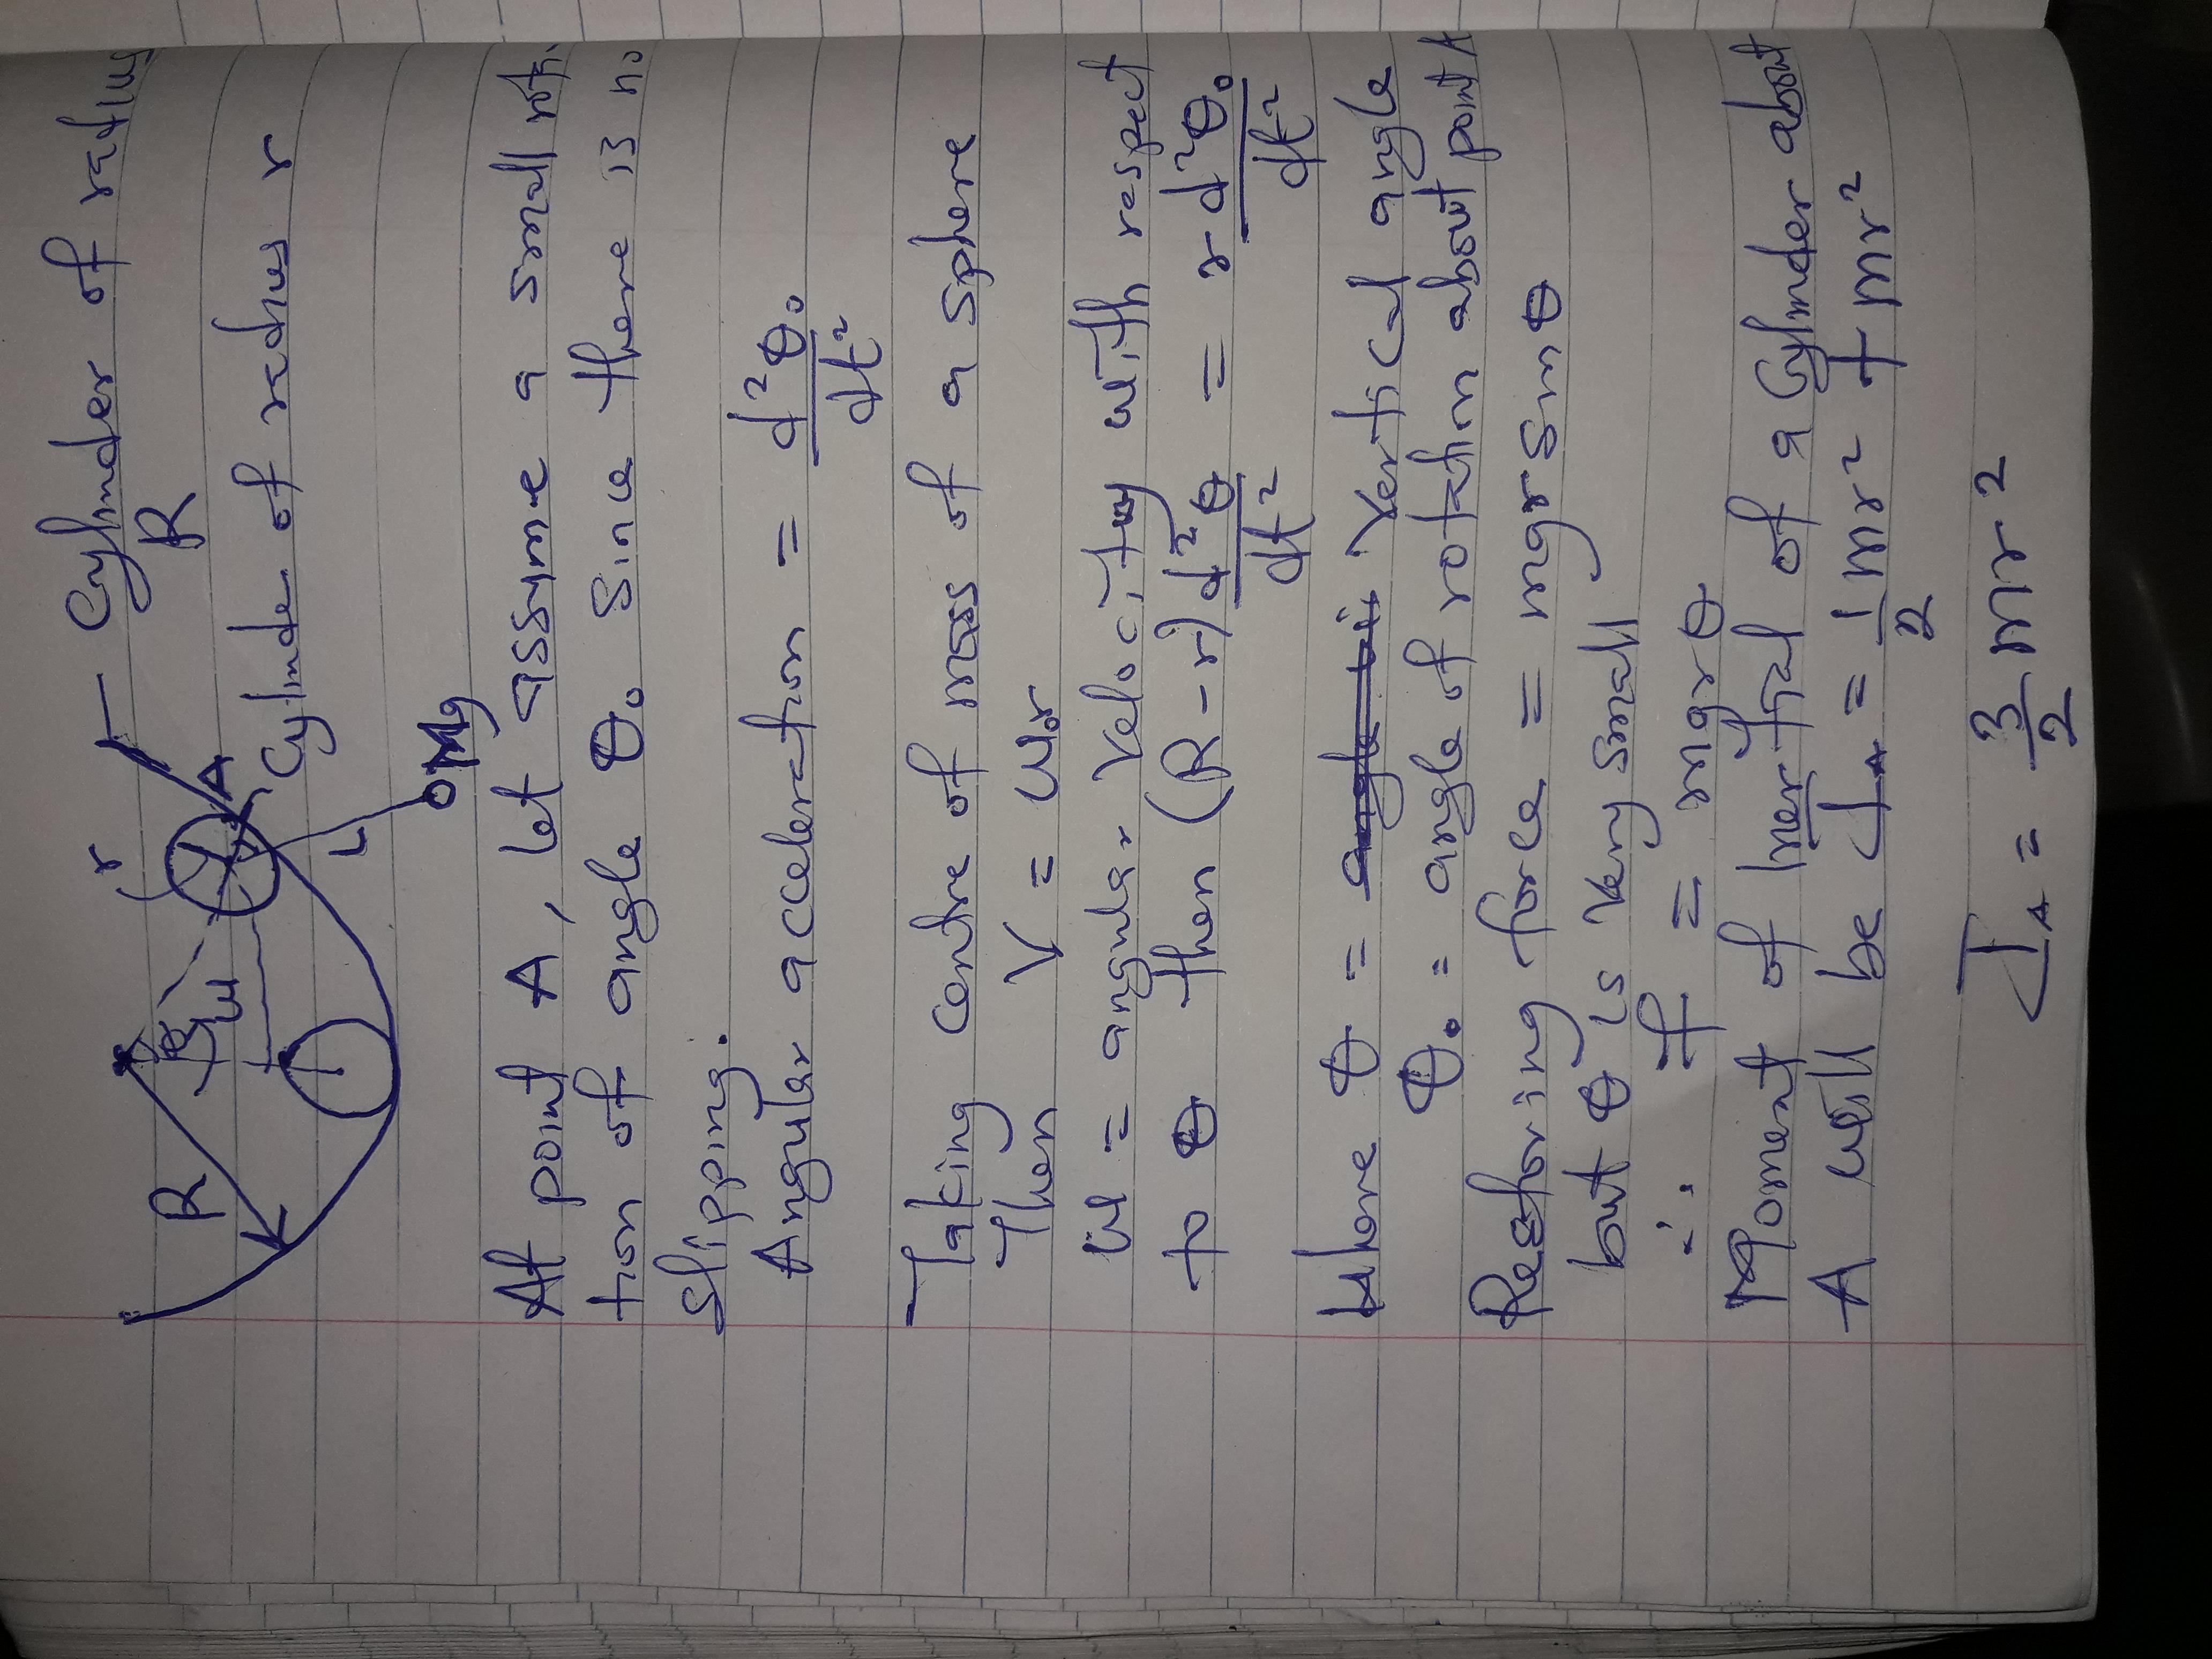 Cylinder of radius
R
r
R
A
Cylinder of radius r
L
Mg
At point A, let assume a small rota
tion of angle θ₀ Since there is no
slipping.
Angular acceleration = d²θ₀/dt²
Taking centre of mass of a sphere
Then V = ωr
ω = angular velocity with respect
to θ then (R-r) d²θ/dt² = r d²θ₀/dt²
where θ = vertical angle
θ₀ = angle of rotation about point A
Restoring force = mgr sinθ
but θ is very small
∴ F = mgrθ
Moment of Inertial of a Cylinder about
A will be I_A = 1/2 mr² + mr²
I_A = 3/2 mr²